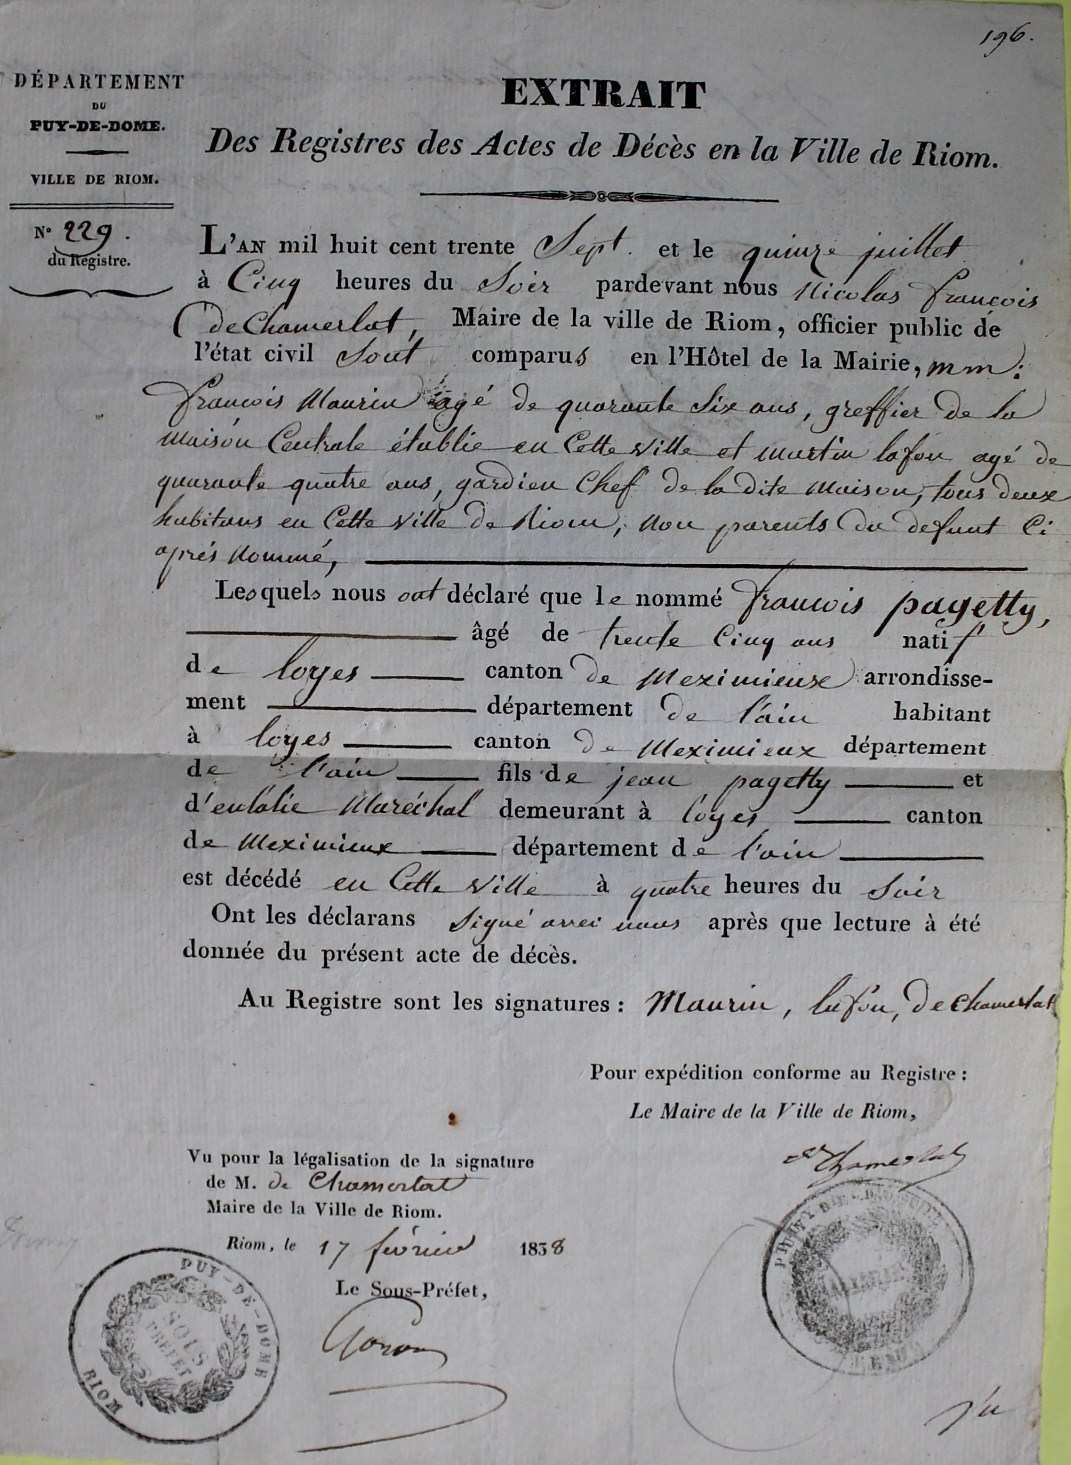 196.
DÉPARTEMENT
DU
PUY-DE-DOME.
VILLE DE RIOM.
N° 229.
du Registre.
EXTRAIT
Des Registres des Actes de Décès en la Ville de Riom.
L'AN mil huit cent trente Sept. et le quinze juillet
à Cinq heures du Soir pardevant nous Nicolas françois
deChamerlat, Maire de la ville de Riom, officier public de
l'état civil Sont comparus en l'Hôtel de la Mairie, mm:
francois Maurin agé de quarante Six ans, greffier de la
Maison Centrale établie en Cette Ville et martin lafon agé de
quarante quatre ans, gardien Chef de la Dite Maison, tous deux
habitans en Cette Ville de Riom, non parents du defunt Ci
après Nommé,
Lesquels nous ont déclaré que le nommé francois pagetty,
âgé de trente Cinq ans natif
de loyes canton de Meximieux arrondisse-
ment département de l'ain habitant
à loyes canton de Meximieux département
de l'ain fils de jean pagetty et
d'eulalie Maréchal demeurant à loyes canton
de Meximieux département de l'ain
est décédé en Cette Ville à quatre heures du Soir
Ont les déclarans Signé avec nous après que lecture à été
donnée du présent acte de décès.
Au Registre sont les signatures : Maurin, lafon, DeChamerlat
Pour expédition conforme au Registre :
Le Maire de la Ville de Riom,
de Chamerlat
Vu pour la légalisation de la signature
de M. de Chamerlat
Maire de la Ville de Riom.
Riom, le 17 février 1838
Le Sous-Préfet,
PUY-DE-DOME
SOUS
PREFET
RIOM